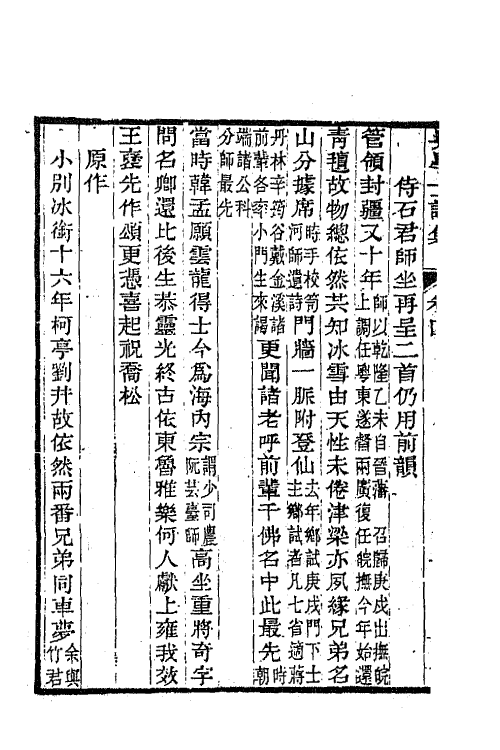 侍石君師坐再呈二首仍用前韻
管領封疆又十年師以乾隆乙未自晉藩 召歸庚戌出撫皖上調任粵東遂督兩廣復任皖撫今年始還
靑氊故物總依然共知冰雪由天性未倦津梁亦夙緣兄弟名
山分據席時手校笥河師遺詩門牆一脈附登仙去年鄉試庚戌門下士主鄉試者凡七省適蔣
丹林辛筠谷戴金溪諸前輩各率小門生來謁更聞諸老呼前輩千佛名中此最先時潮
端諸公科分師最先
當時韓孟願雲龍得士今爲海內宗謂少司農阮芸臺師高坐重將奇字
問名卿還比後生恭靈光終古依東魯雅樂何人獻上雍我效
王褒先作頌更憑喜起祝喬松
原作
小別冰銜十六年柯亭劉井故依然兩番兄弟同車夢余與竹君